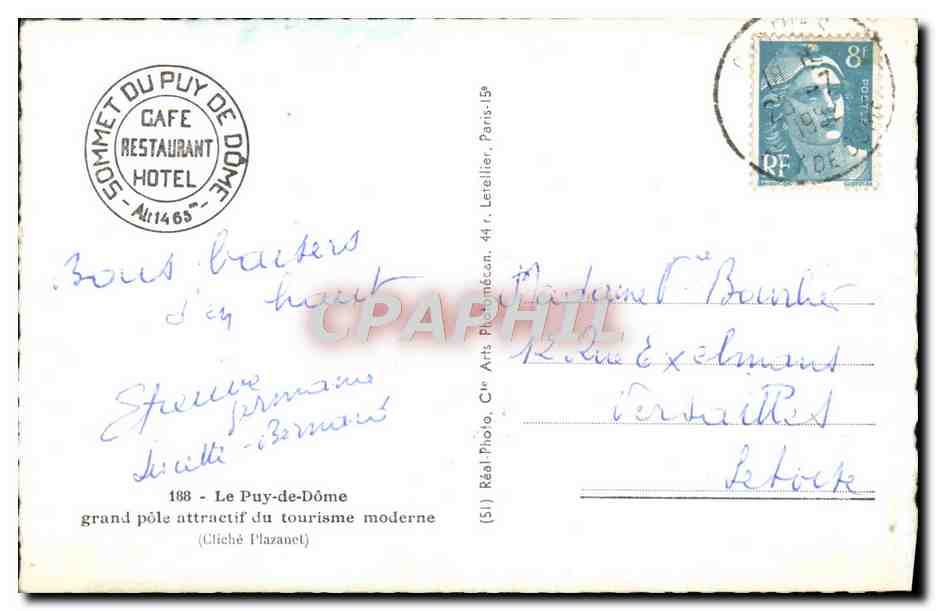 SOMMET DU PUY DE DÔME
CAFE
RESTAURANT
HOTEL
- Alt 1465m -
Bons baisers
d'en haut
Germaine
Lucette - Bernard
188 - Le Puy-de-Dôme
grand pôle attractif du tourisme moderne
(Cliché Plazanet)
(51) Réal-Photo, Cie Arts Photomécan. 44 r. Letellier, Paris-15e
8F
POSTES
RF
DE DOME
CPAPHIL
Madame
12 Rue Exelmans
Versailles
S et Oise